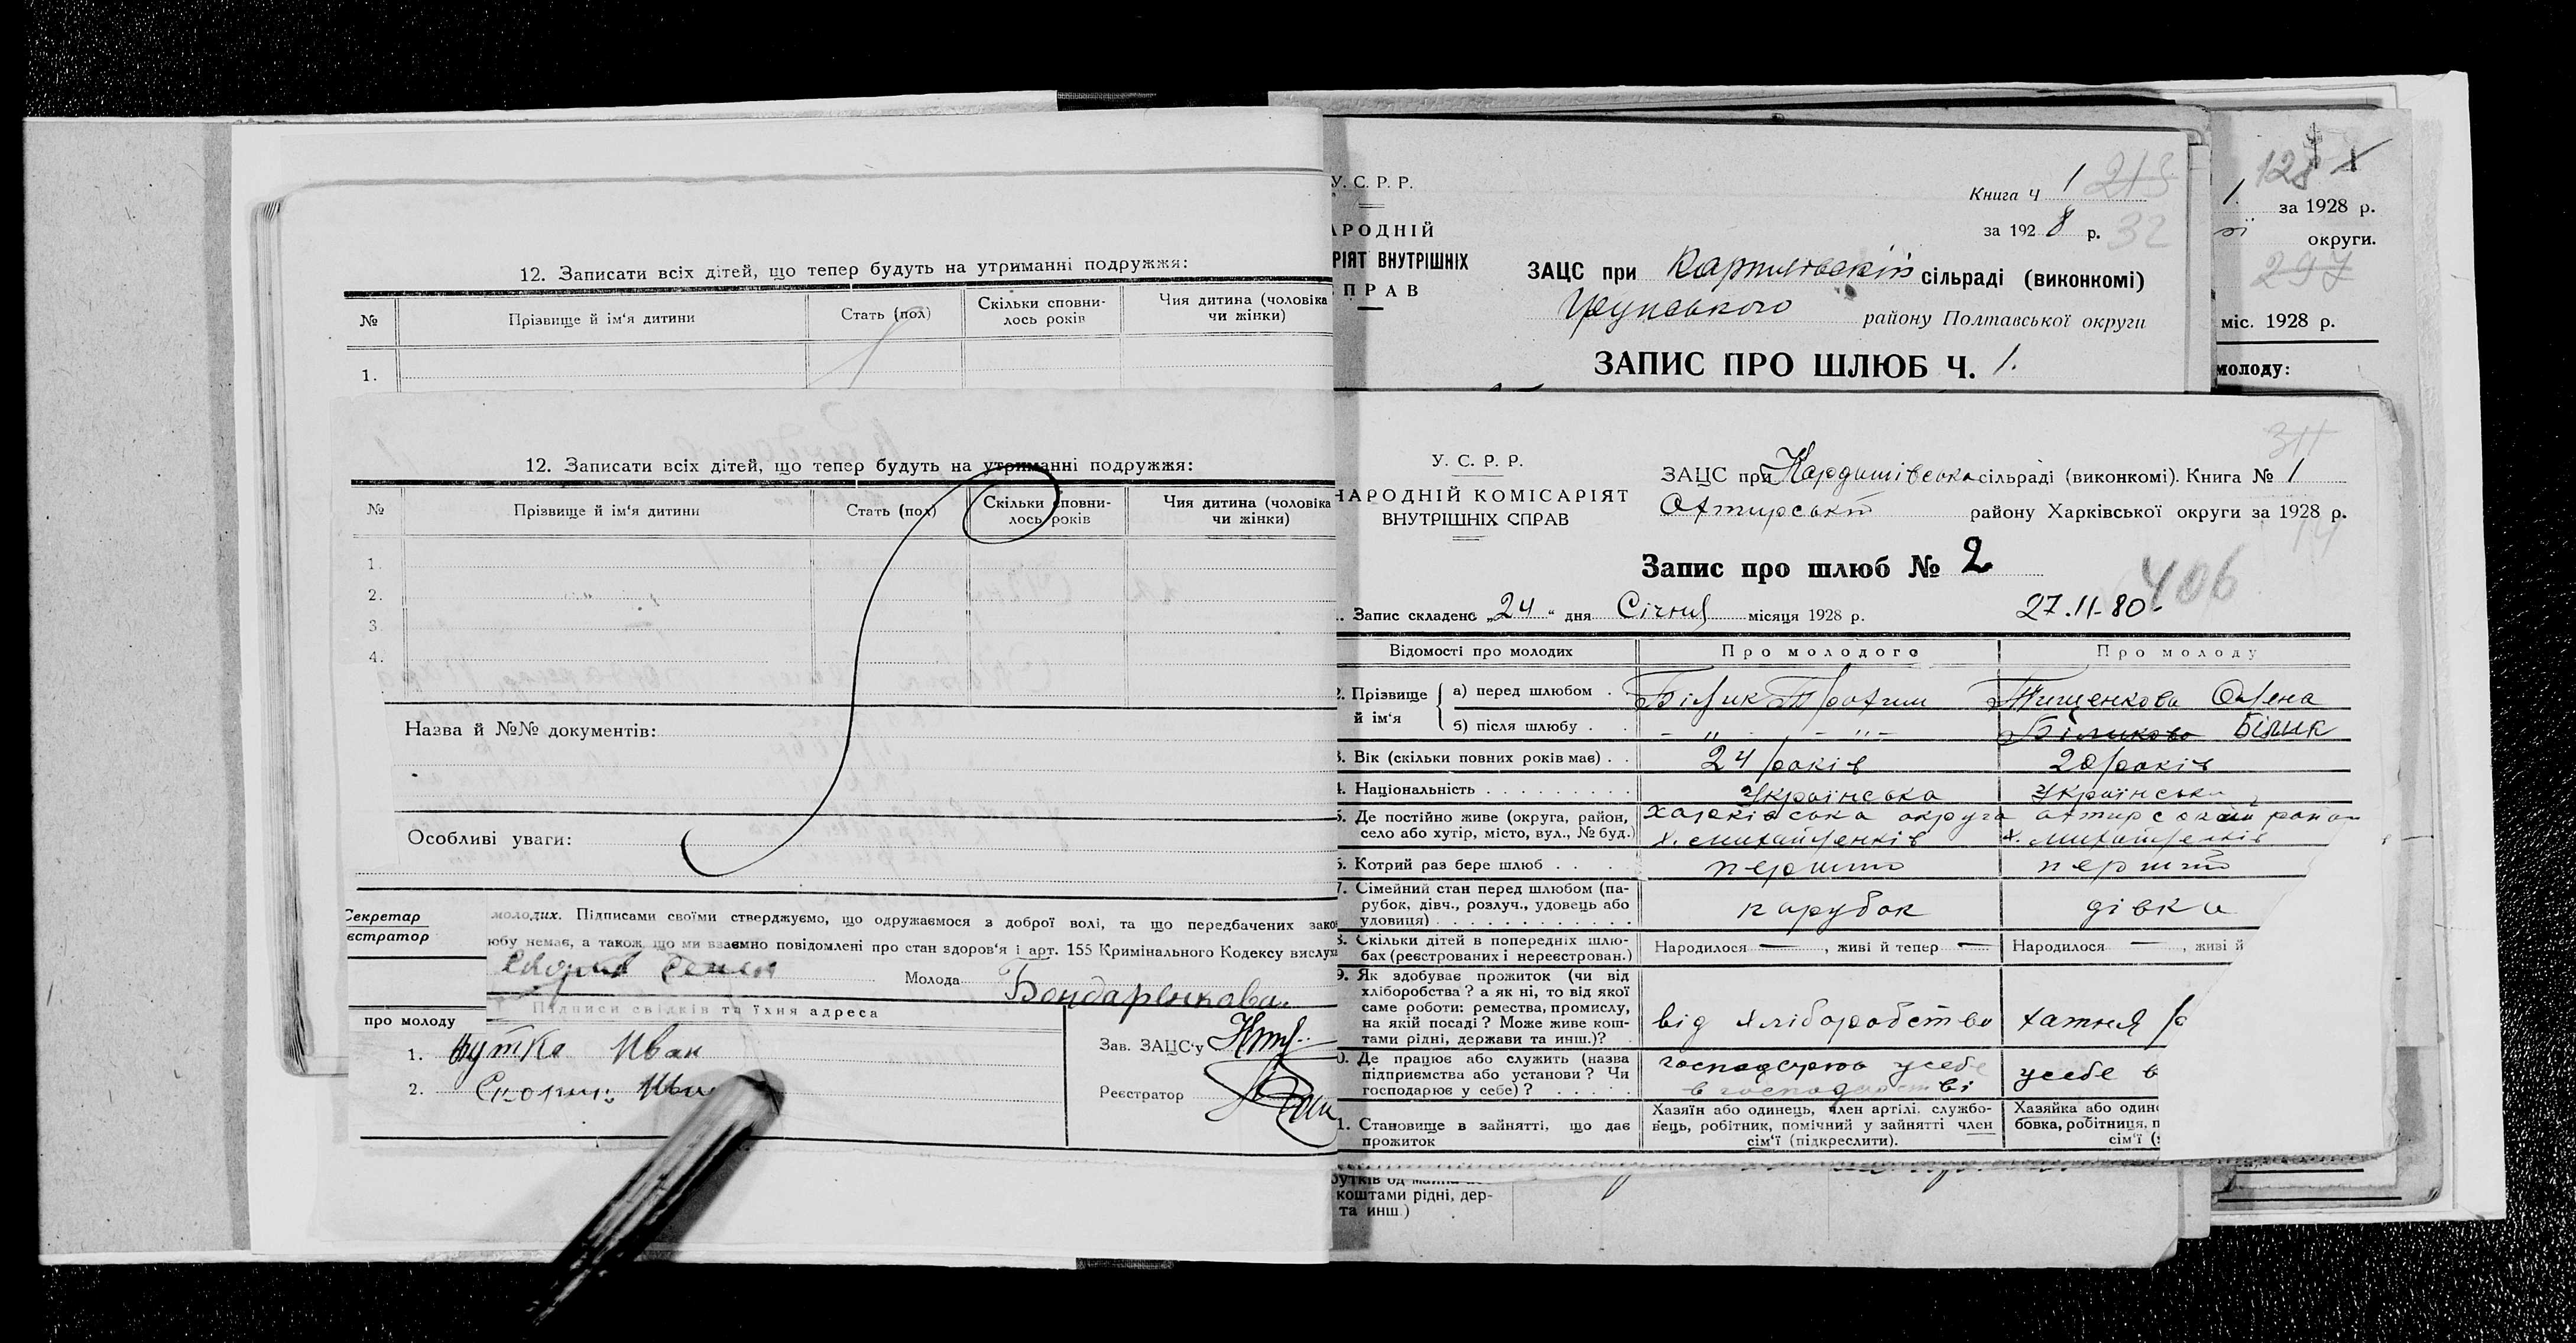 12. Записати всіх дітей, що тепер будуть на утриманні подружжя:
№ Прізвище й ім'я дитини Стать (пол) Скільки сповни-лось років Чия дитина (чоловіка чи жінки)
1.
12. Записати всіх дітей, що тепер будуть на утриманні подружжя:
№ Прізвище й ім'я дитини Стать (пол) Скільки сповни-лось років Чия дитина (чоловіка чи жінки)
1.
2.
3.
4.
Назва й №№ документів:
Особливі уваги:
Секретар
естратор
молодих. Підписами своїми стверджуємо, що одружаємося з доброї волі, та що передбачених зако
юбу немає, а також, що ми взаємно повідомлені про стан здоров'я і арт. 155 Кримінального Кодексу вислуха
Молода Бондаренкова
Підписи свідків та їхня адреса
про молоду
1. Иван
2.
Зав. ЗАЦС'у
Реєстратор
У. С. Р. Р.
АРОДНІЙ
РІЯТ ВНУТРІШНІХ
ПРАВ
Книга ч 1 213
за 1928 р. 32
ЗАЦС при сільраді (виконкомі)
Грунського району Полтавської округи
ЗАПИС ПРО ШЛЮБ Ч. 1.
128
1. за 1928 р.
округи.
297
міс. 1928 р.
молоду:
У. С. Р. Р.
НАРОДНІЙ КОМІСАРІЯТ
ВНУТРІШНІХ СПРАВ
311
ЗАЦС при Кардашівська сільраді (виконкомі). Книга № 1
Охтирський району Харківської округи за 1928 р.
Запис про шлюб № 2
406
Запис складено „24" дня Січня місяця 1928 р. 27.11-80
Відомості про молодих Про молодого Про молоду
2. Прізвище й ім'я а) перед шлюбом Білик Трохим Тищенкова Олена
б) після шлюбу - „ - - „ - Біликова Білик
3. Вік (скільки повних років має) 24 років 20 років
4. Національність Українська Українська
5. Де постійно живе (округа, район, село або хутір, місто, вул., № буд.) Харківська округа Охтирський район
х. Михайленків х. Михайленків
6. Котрий раз бере шлюб перший перший
7. Сімейний стан перед шлюбом (па-рубок, дівч., розлуч., удовець або удовиця) парубок дівка
8. Скільки дітей в попередніх шлю-бах (реєстрованих і нереєстрован.) Народилося —, живі й тепер — Народилося —, живі й
9. Як здобуває прожиток (чи від хліборобства? а як ні, то від якої саме роботи: ремества, промислу, на якій посаді? Може живе кош-тами рідні, держави та инш.)? від хліборобства хатня
10. Де працює або служить (назва підприємства або установи? Чи господарює у себе)? господарює у себе в господарстві у себе в
11. Становище в зайнятті, що дає прожиток Хазяїн або одинець, член артілі, службо-вець, робітник, помічний у зайнятті член сім'ї (підкреслити). Хазяйка або один
бовка, робітниця, п
сім'ї (
коштами рідні, дер-
та инш.)